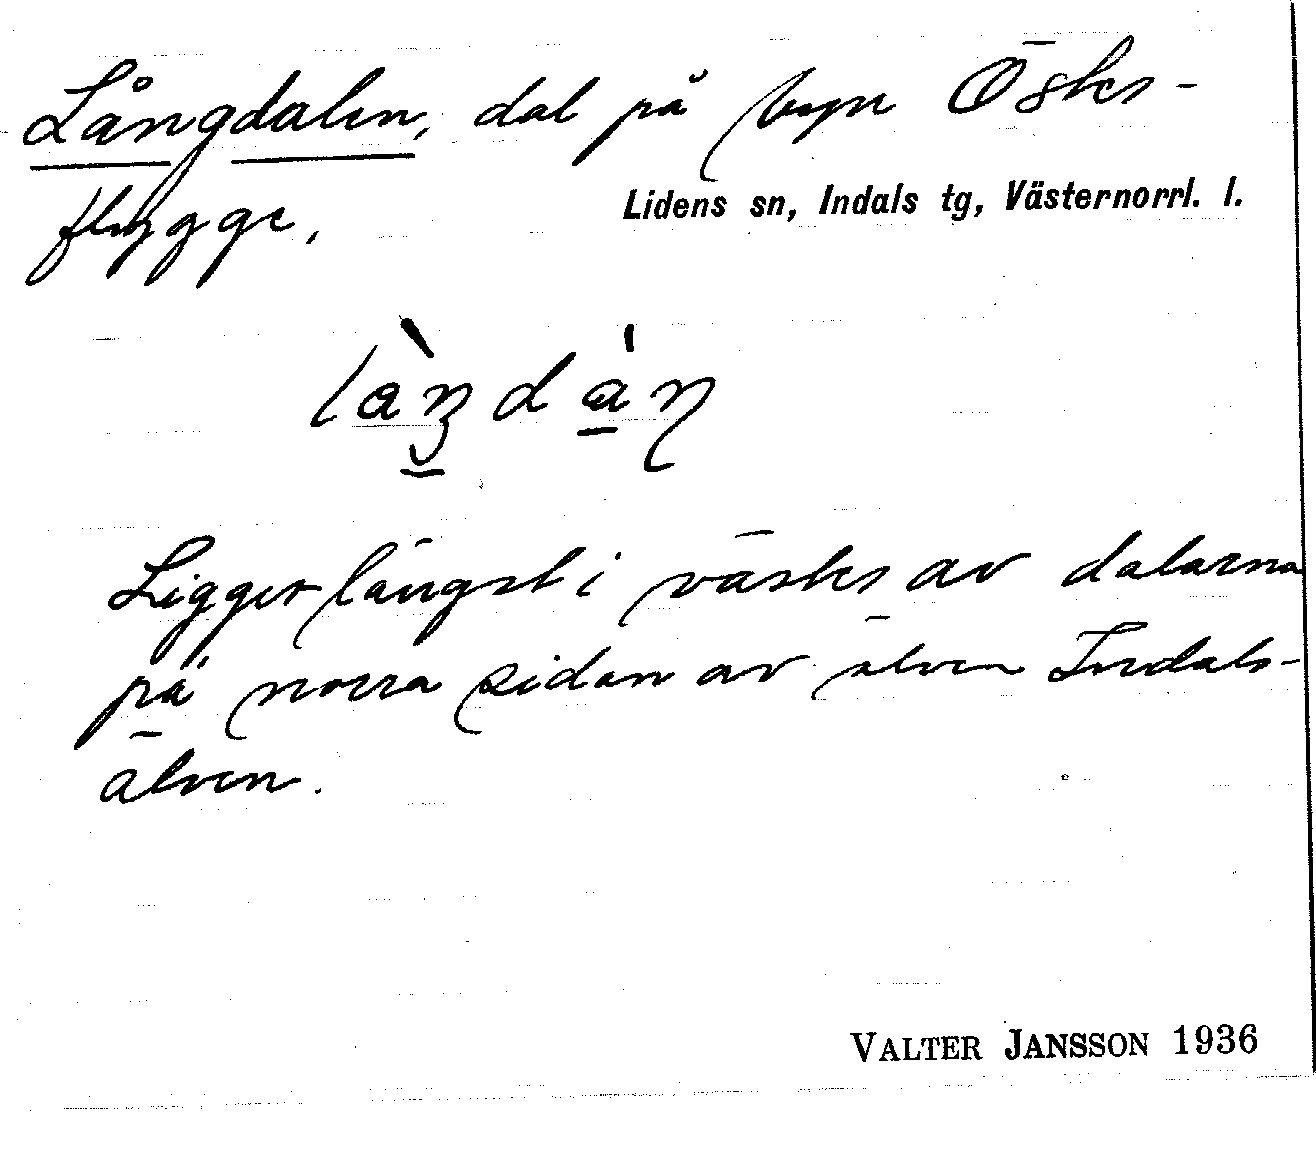 Långdalen, dal på byn Öster-
flygge,
Lidens sn, Indals tg, Västernorrl. l.
Ligger längst i väster av dalarna
på norra sidan av älven Indals-
älven.
VALTER JANSSON 1936